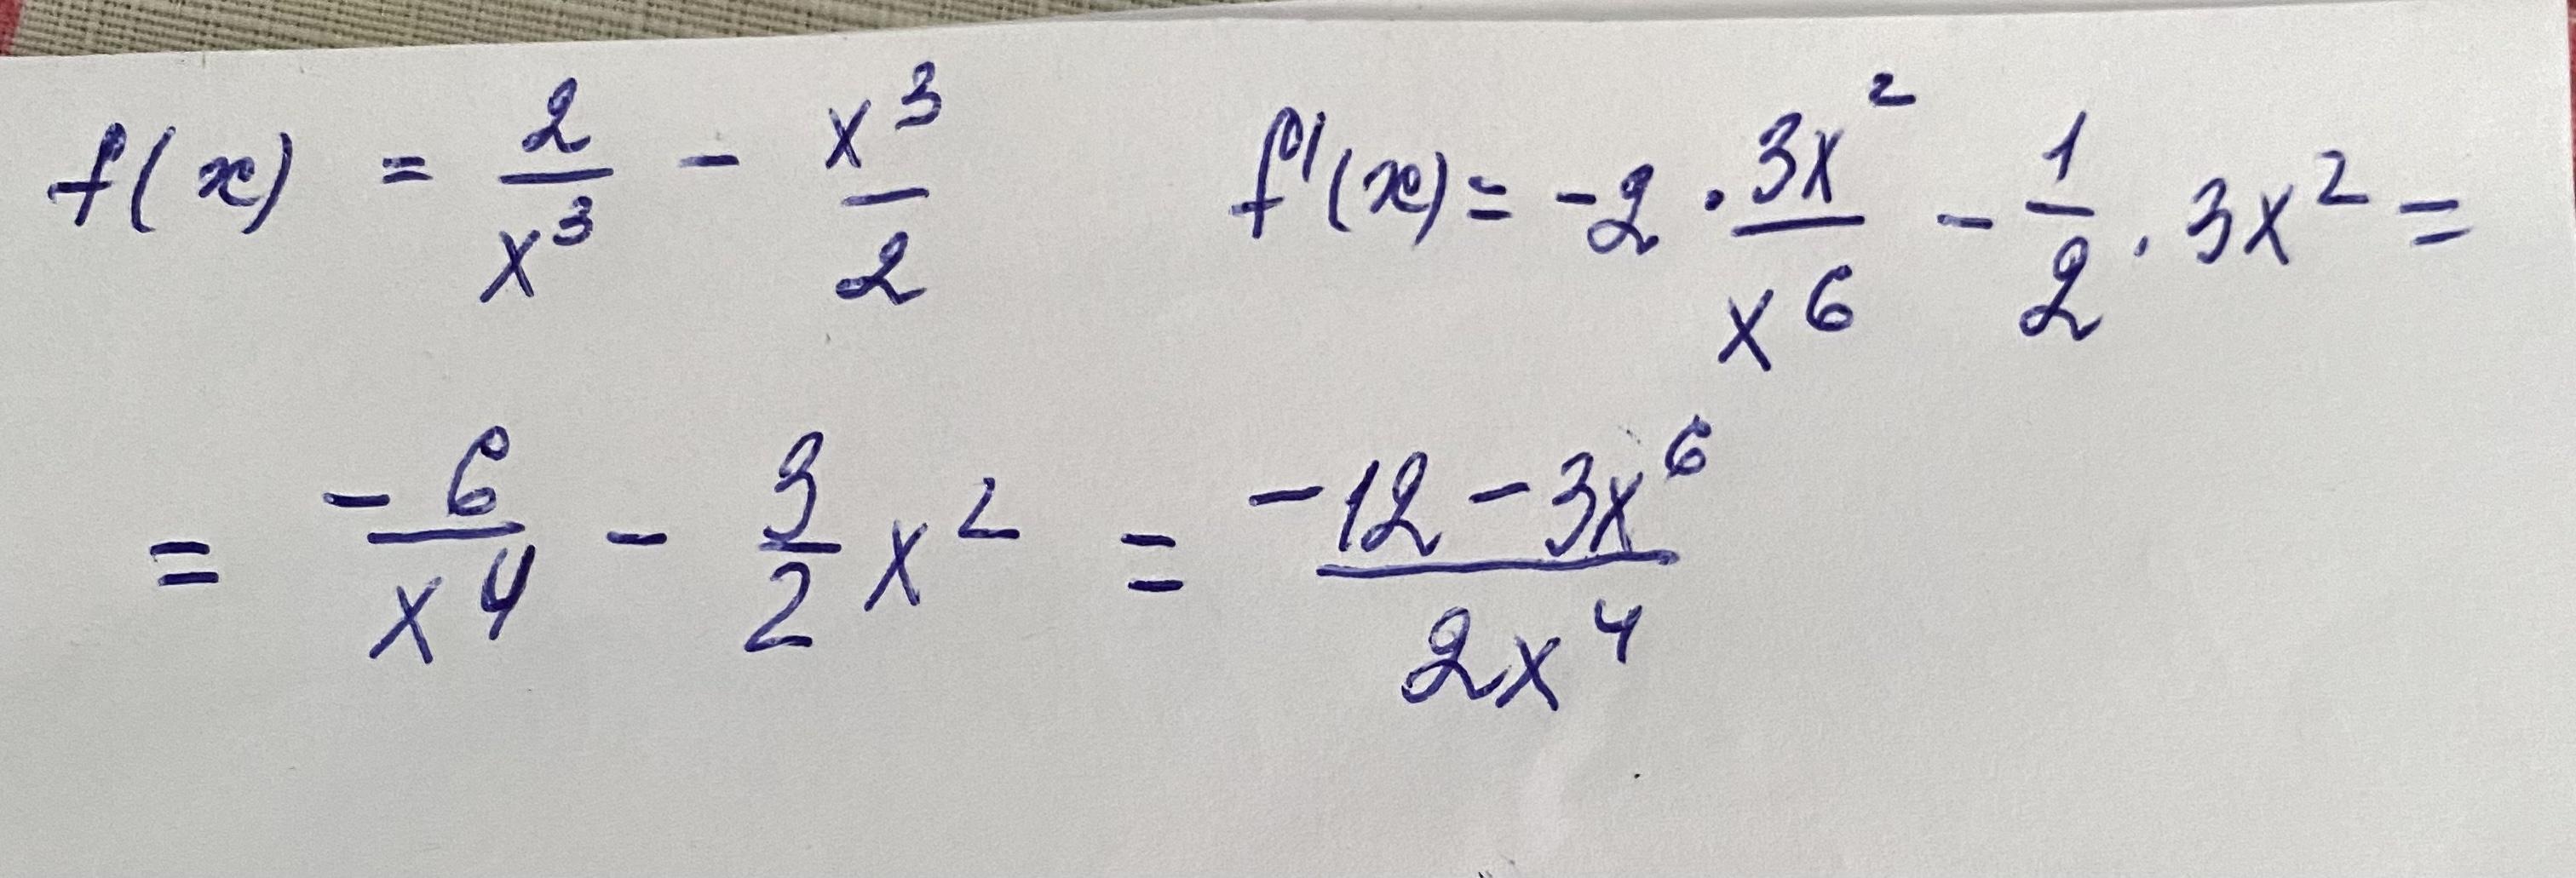 f(x) = 2/x³ - x³/2    f'(x) = -2 · 3x²/x⁶ - 1/2 · 3x² =
= -6/x⁴ - 3/2 x² = (-12 - 3x⁶)/(2x⁴)